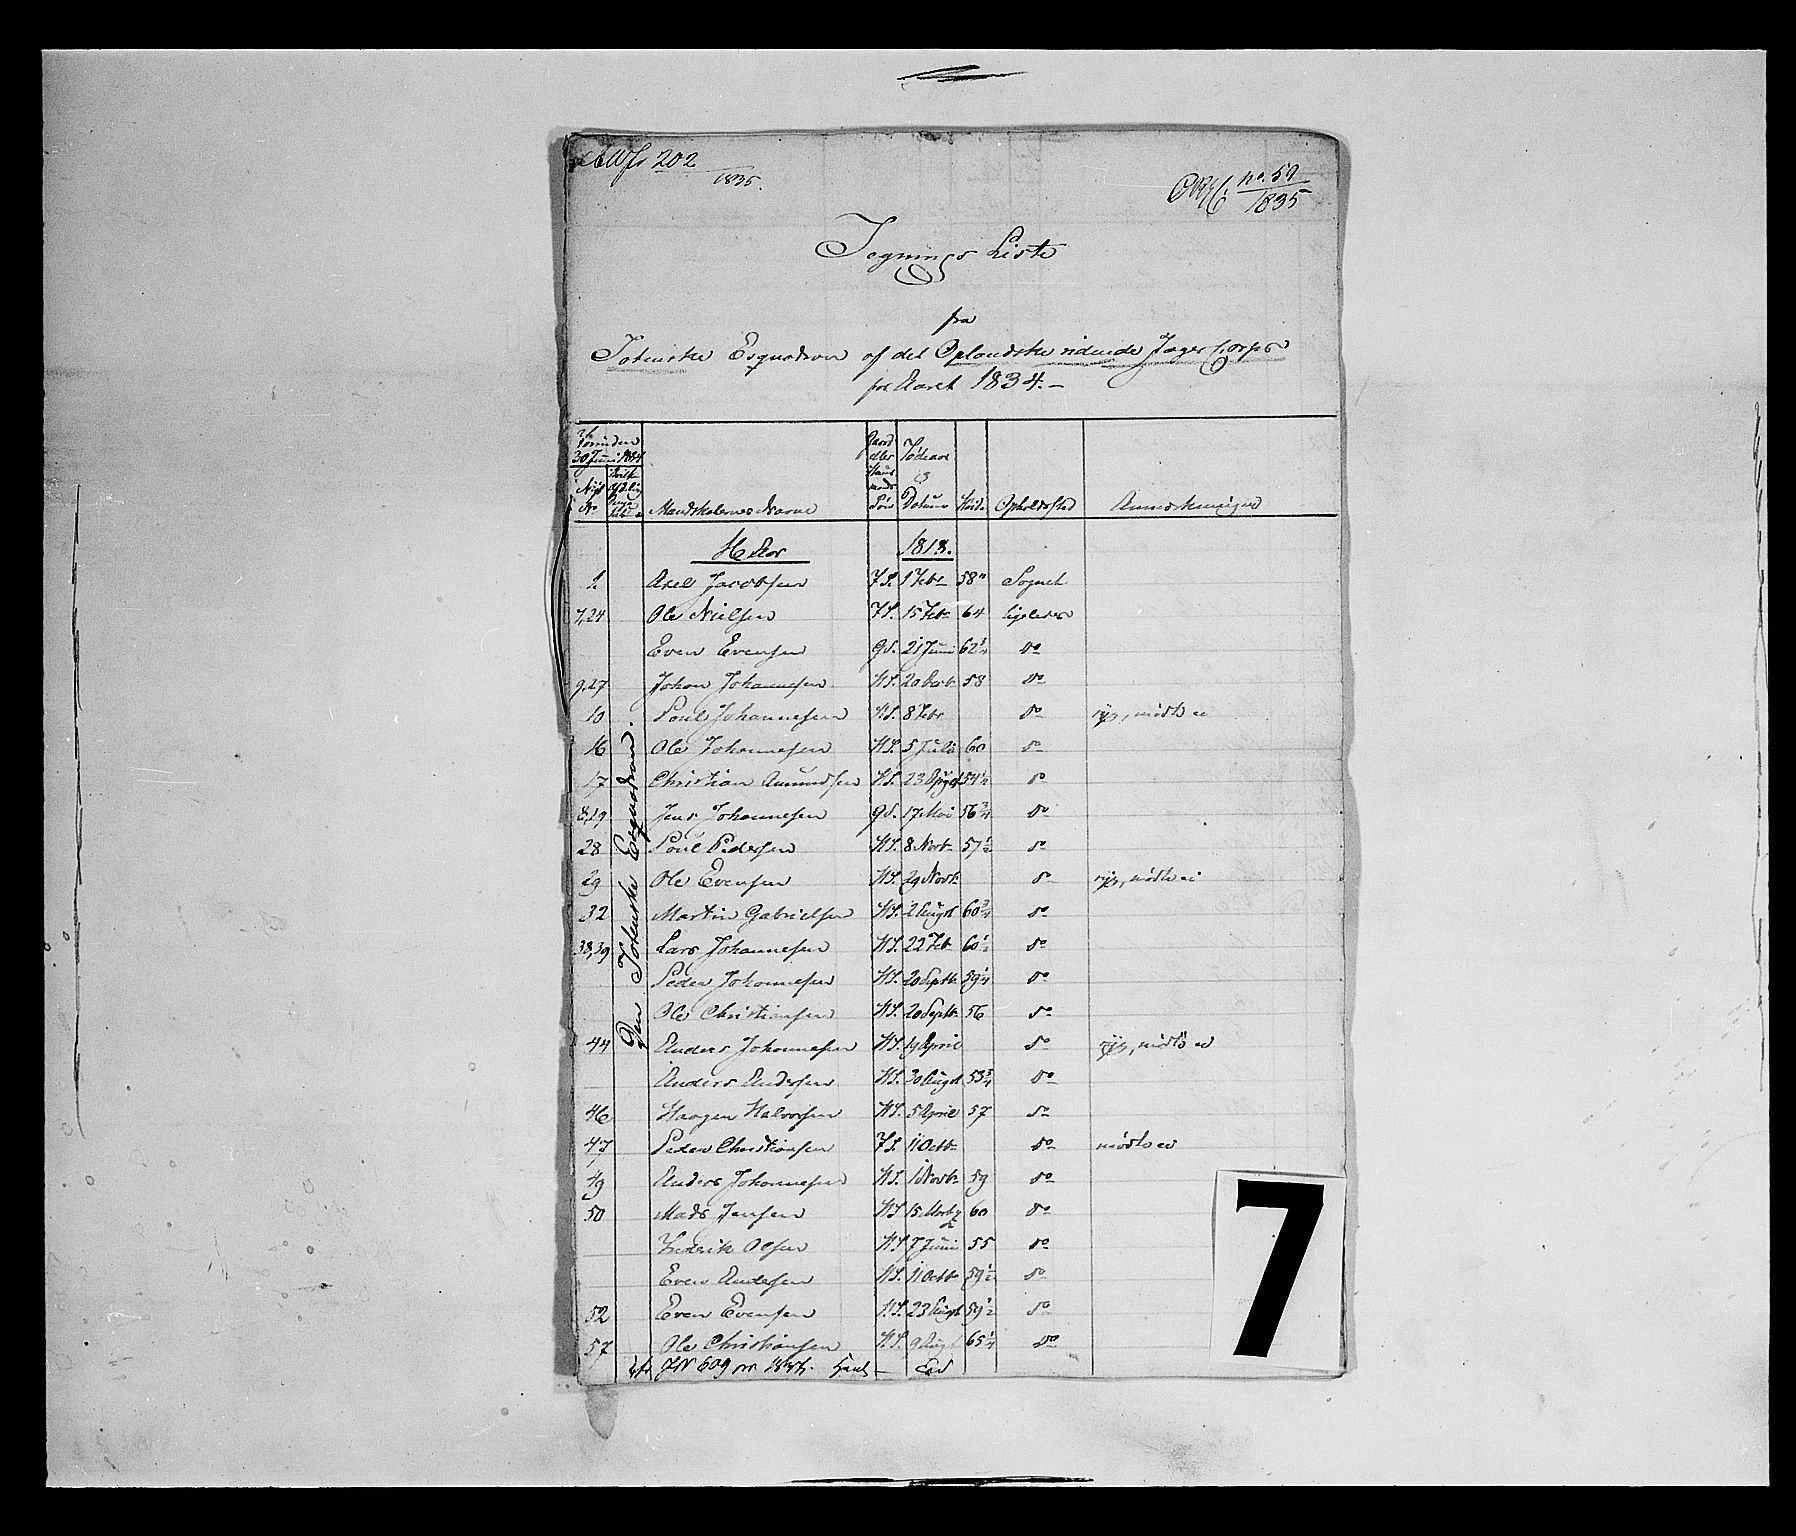 202
1835.
no. 57
1835
Tegnings Liste
fra
Totenske Esquadron af det Oplandske ridende Jæger Corps
for Aaret 1834.-
30 Juni 1834
Gaard
eller
Huus
mands
Søn
Fødeaar
&
Datum
Høide
No
Mandskabernes Navne
Opholdssted
Anmerkninger
1818.
Den Totenske Esquadron.
1 Axel Jacobsen F.S. 1 Febr 58" Sognet
7,24 Ole Nielsen F.S. 15 Febr 64 ligeledes
Even Evensen g S. 21 Juni 62¾ do
9.27 Johan Johannesen H.S. 20 58 do
10 Poul Johannesen H.S. 8 Febr do mødte ei
16 Ole Johannesen H.S. 5 Juli 60 do
17 Christian Amundsen H.S. 23 54½ do
8,19 Jens Johannesen g S. 17 Mai 56¾ do
28 Poul Pedersen H.S. 8 Novbr 57½ do
29 Ole Evensen H.S. 29 Novbr do mødte ei
32 Martin Gabrielsen H.S. 2 August 60¾ do
38,39 Lars Johannesen H.S. 22 Feb 60½ do
Peder Johannesen H.S. 20 Septbr 59¼ do
Ole Christiansen H.S. 20 Septbr 56 do
44 Anders Johannesen H.S. 19 April do mødte ei
Anders Andersen H.S. 30 August 53¾ do
46 Haagen Halvorsen H.S. 5 April 57 do
47 Peder Christiansen F.S. 11 Octbr do mødte ei
49 Anders Johannesen H.S. 1 Novbr 59 do
50 Mads Jensen H.S. 15 60 do
Frederik Olsen H.S. 7 Juni 55 do
Even Andersen H.S. 11 Octbr 59½ do
52 Even Evensen H.S. 23 August 59½ do
57 Ole Christiansen H.S. 9 Augst 65¼ do
JN 609
7